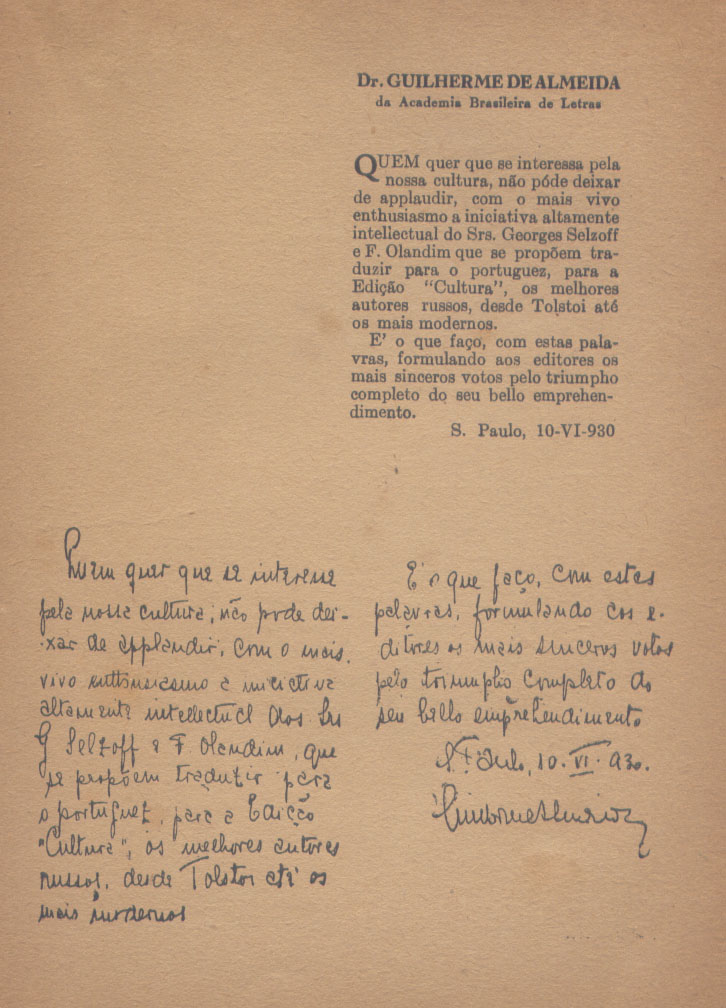 Dr. GUILHERME DE ALMEIDA
da Academia Brasileira de Letras
QUEM quer que se interessa pela
nossa cultura, não póde deixar
de applaudir, com o mais vivo
enthusiasmo a iniciativa altamente
intellectual do Srs. Georges Selzoff
e F. Olandim que se propõem tra-
duzir para o portuguez, para a
Edição "Cultura", os melhores
autores russos, desde Tolstoi até
os mais modernos.
E' o que faço, com estas pala-
vras, formulando aos editores os
mais sinceros votos pelo triumpho
completo do seu bello emprehen-
dimento.
S. Paulo, 10-VI-930
Quem quer que se interesse
pela nossa cultura, não pode dei-
xar de applaudir, com o mais
vivo enthusiasmo a iniciativa
altamente intellectual dos Srs
G Selzoff e F Olandim, que
se propõem traduzir para
o portuguez, para a Edição
"Cultura", os melhores autores
russos, desde Tolstoi até os
mais modernos
E' o que faço, com estas
palavras, formulando aos e-
ditores os mais sinceros votos
pelo triumpho completo do
seu bello emprehendimento
S. Paulo, 10. VI. 930.
Guilherme de Almeida